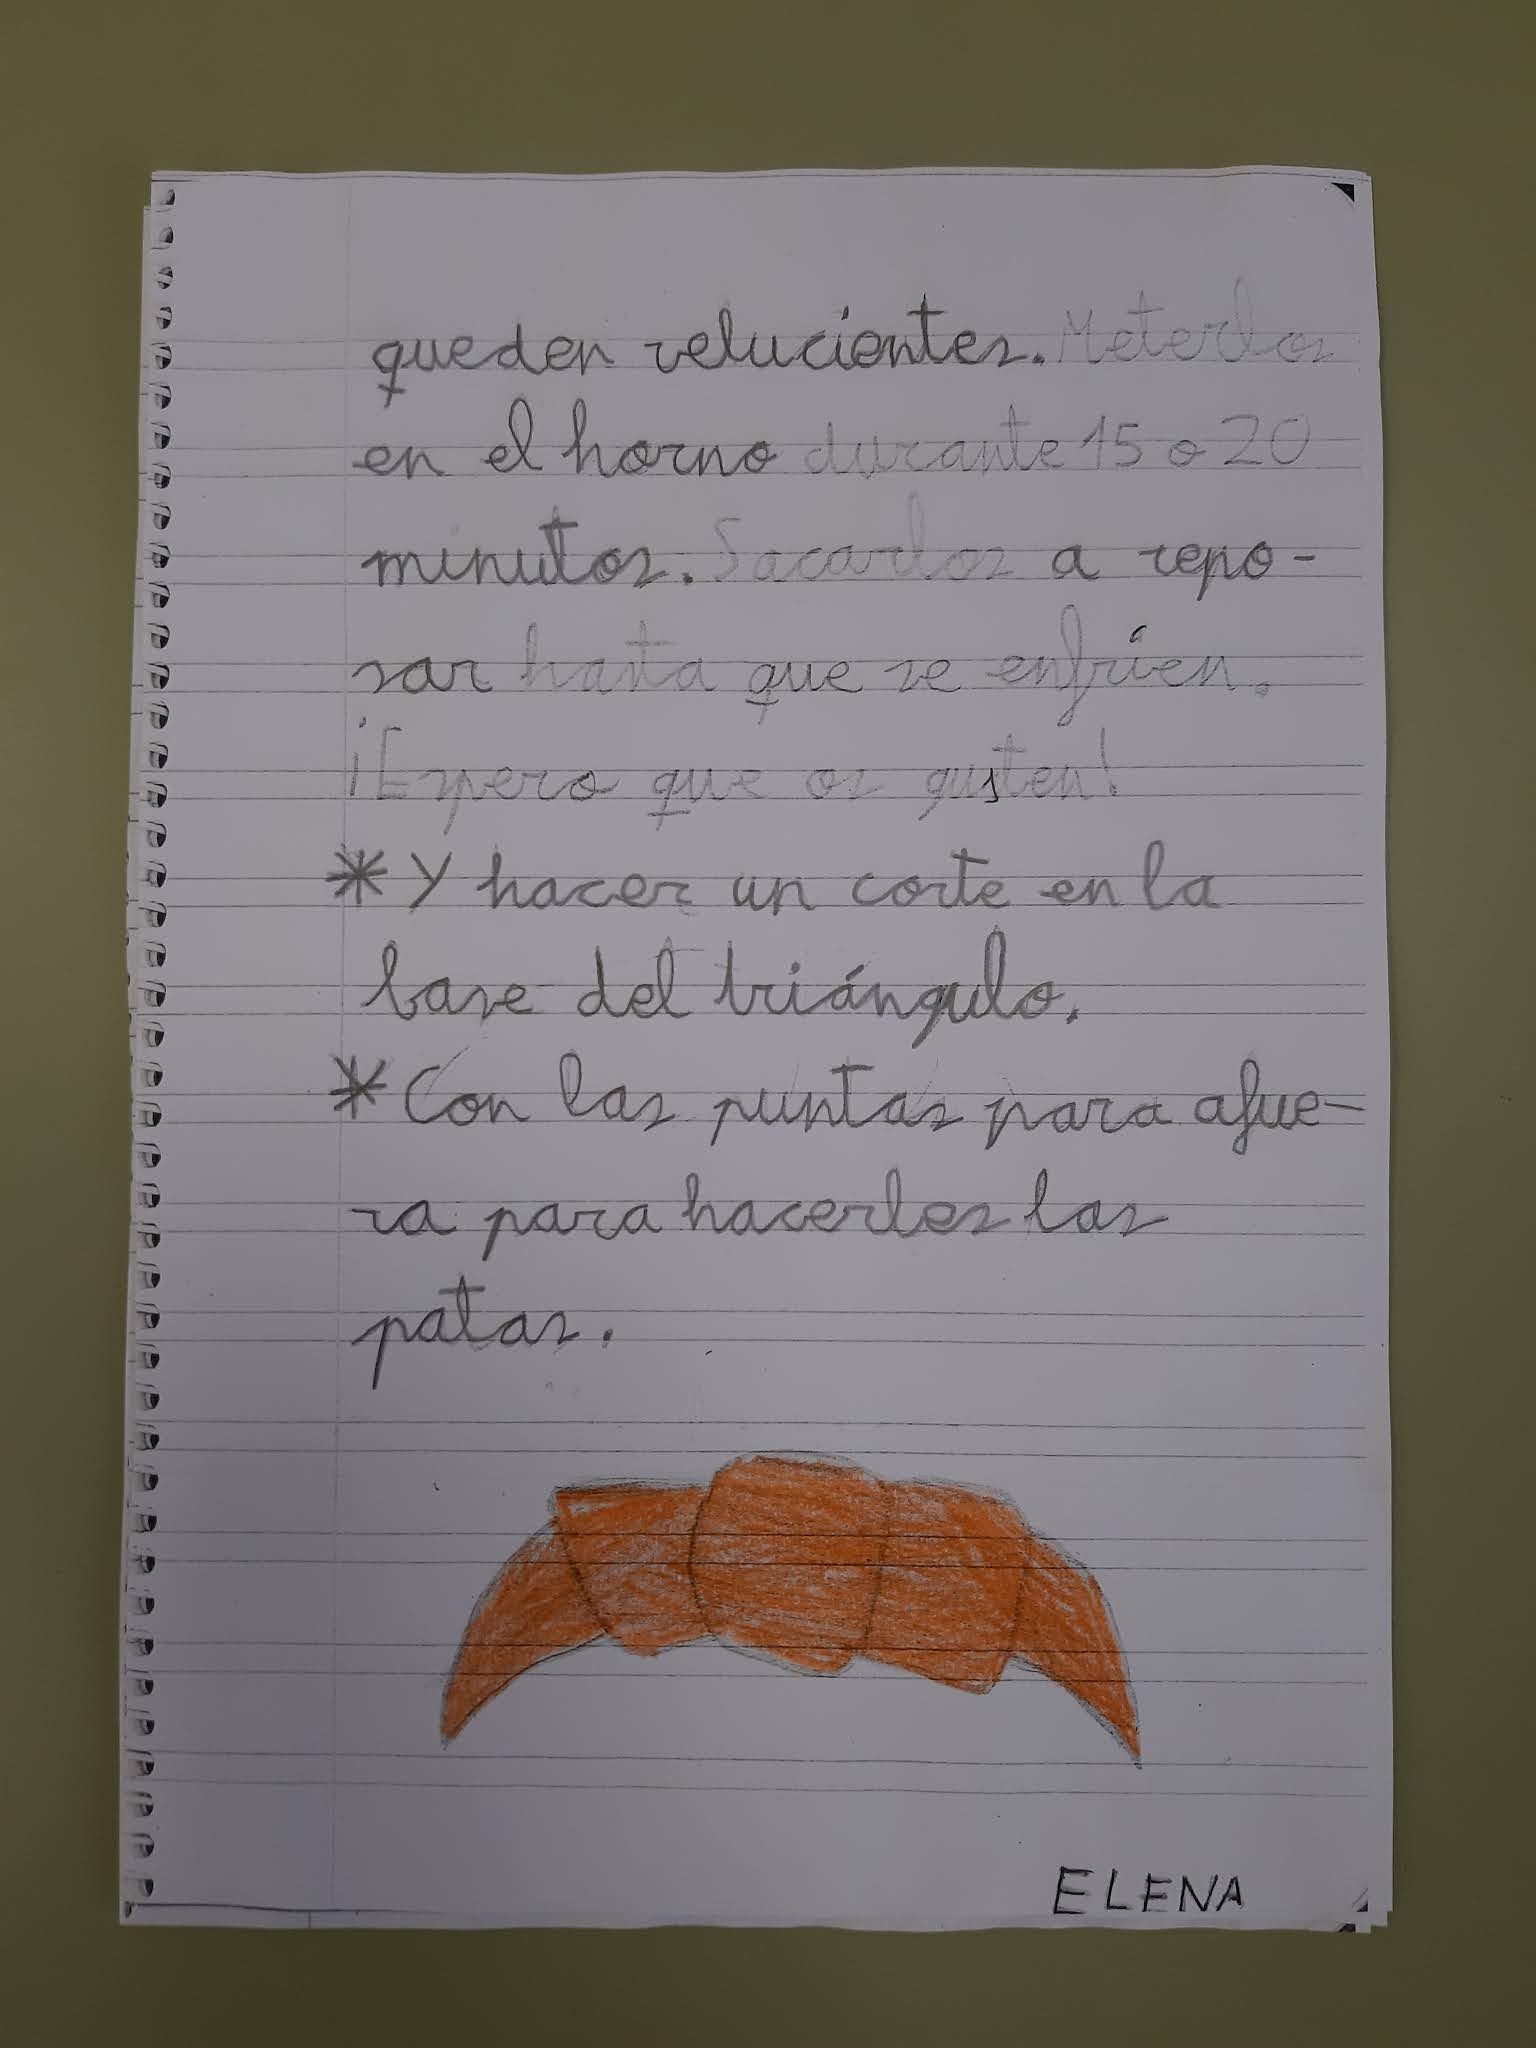 queden relucientes. Meterlos
en el horno durante 15 o 20
minutos. Sacarlos a repo-
sar hasta que se enfríen.
¡Espero que os gusten!
* Y hacer un corte en la
base del triángulo.
* Con las puntas para afue-
ra para hacerles las
patas.
ELENA